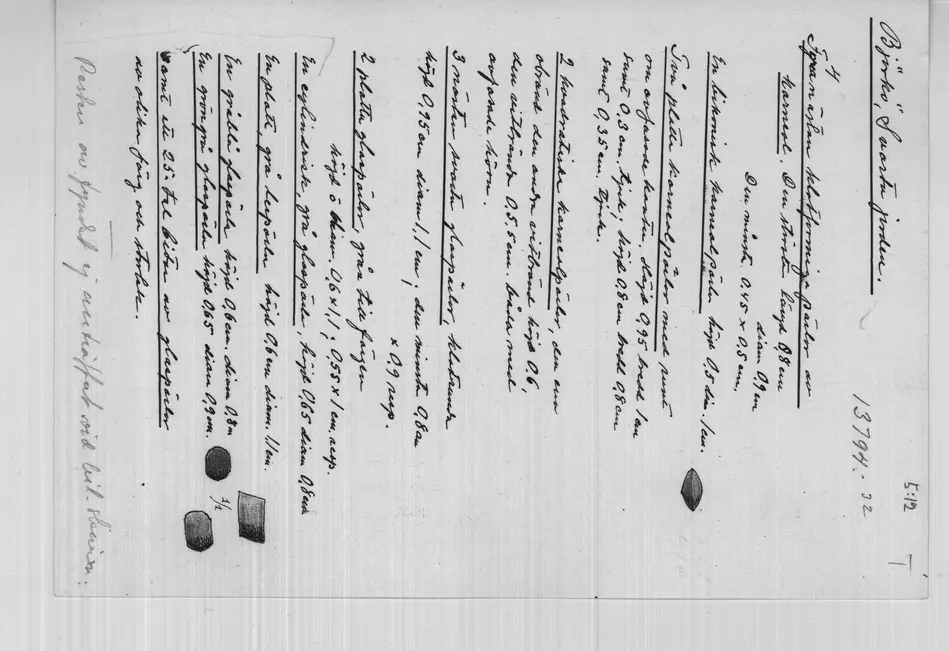 5:12
T
Björkö, Svarta jorden.
13794.-32
4
Fyra nästan klotformiga pärlor av
karneol. Den största längd 0,8 cm
diam. 0,9 cm
Den minsta 0.45 x 0,5 cm.
En bikonisk karneolpärla höjd 0,5 dia. 1 cm.
Två platta karneolpärlor med runt
om avfasade kanter. Höjd 0,95 bredd 1 cm
samt 0.3 cm. tjock, höjd 0,8 cm bredd 0,8 cm
samt 0,35 cm. tjock.
2 kvadratiska karneolpärlor, den ena
obränd den andra vitbränd höjd 0.6,
den vitbrända 0,5.5 cm. båda med
avfasade hörn.
3 mörka svarta glaspärlor, klotrunda
höjd 0,95 cm diam 1,1 cm, den minsta 0,8 cm
x 0,9 resp.
2 platta glaspärlor, gråa till färgen
höjd o diam. 0,6 x 1,1, 0,55 x 1 cm, resp.
En cylindrisk grå glaspärla, höjd 0,65 diam 0,8 cm
En platt, grå lerpärla höjd 0,6 cm diam. 1,1 cm.
En gråblå glaspärla höjd 0,6 cm. diam 0,8 cm
En gröngrå glaspärla höjd 0,65 diam 0,9 cm.
1/2
samt ett 25-tal bitar av glaspärlor
av olika färg och storlek.
Resten av fyndet ej anträffat vid